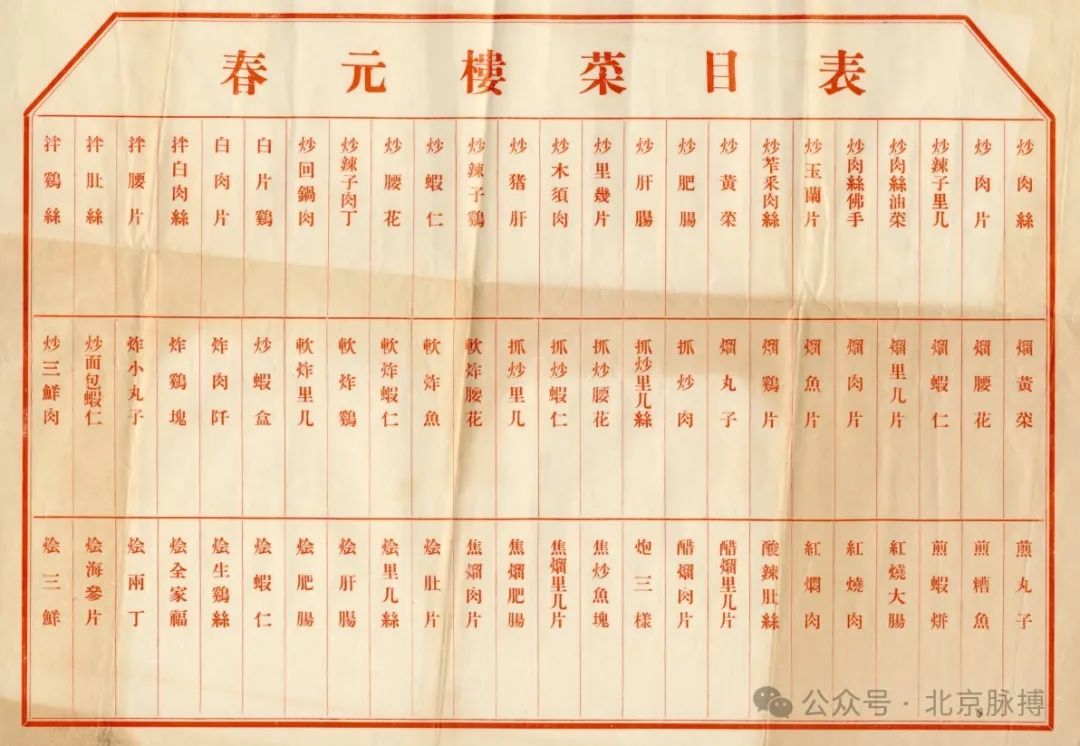 春元樓菜目表
炒肉絲
炒肉片
炒辣子里几
炒肉絲油菜
炒肉絲佛手
炒玉蘭片
炒苲釆肉絲
炒黃菜
炒肥腸
炒肝腸
炒里幾片
炒木須肉
炒猪肝
炒辣子鷄
炒蝦仁
炒腰花
炒辣子肉丁
炒回鍋肉
白片鷄
白肉片
拌白肉絲
拌腰片
拌肚絲
拌鷄絲
熘黃菜
熘腰花
熘蝦仁
熘里几片
熘肉片
熘魚片
熘鷄片
熘丸子
抓炒肉
抓炒里几絲
抓炒腰花
抓炒蝦仁
抓炒里几
軟炸腰花
軟炸魚
軟炸蝦仁
軟炸鷄
軟炸里几
炒蝦盒
炸肉阡
炸鷄塊
炸小丸子
炒面包蝦仁
炒三鮮肉
煎丸子
煎糟魚
煎蝦烳
紅燒大腸
紅燒肉
紅燜肉
酸辣肚絲
醋熘里几片
醋熘肉片
炮三樣
焦炒魚塊
焦熘里几片
焦熘肥腸
焦熘肉片
燴肚片
燴里几絲
燴肝腸
燴肥腸
燴蝦仁
燴生鷄絲
燴全家福
燴兩丁
燴海參片
燴三鮮
公众号·北京脉搏